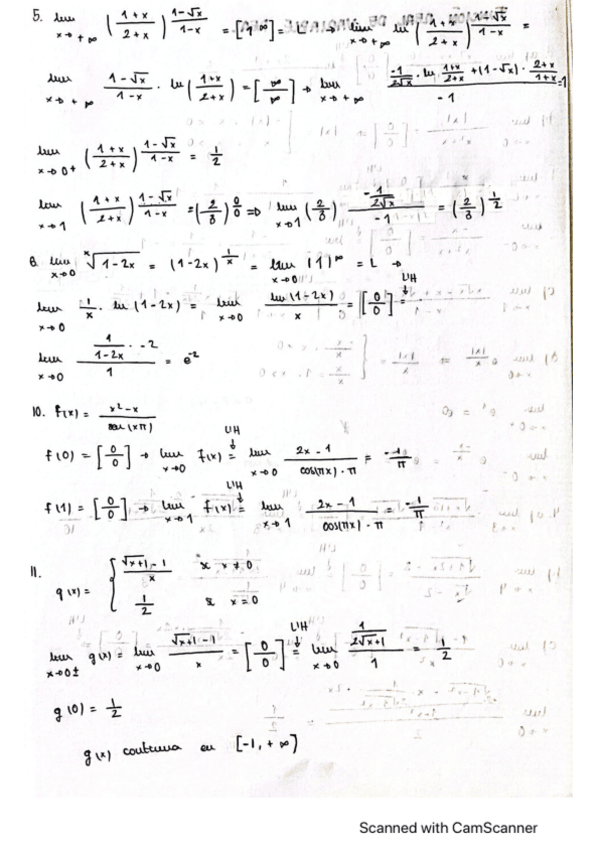 5. lim x→+∞ ((1+x)/(2+x))^((1-√x)/(1-x)) = [1^∞] = L → lim x→+∞ ln((1+x)/(2+x))^((1-√x)/(1-x)) =
lim x→+∞ (1-√x)/(1-x) · ln((1+x)/(2+x)) = [∞/∞] → lim x→+∞ (-1/(2√x) · ln (1+x)/(2+x) + (1-√x) · (2+x)/(1+x))/(-1) =1
lim x→0+ ((1+x)/(2+x))^((1-√x)/(1-x)) = 1/2
lim x→1 ((1+x)/(2+x))^((1-√x)/(1-x)) = (2/3)^(0/0) ⇒ lim x→1 (2/3)^((-1/(2√x))/(-1)) = (2/3)^(1/2)
lim x→0 ˣ√(1-2x) = (1-2x)^(1/x) = lim x→0 (1)^∞ = L →
lim x→0 1/x · ln(1-2x) = lim x→0 ln(1-2x)/x = [0/0] = L'H ↓
lim x→0 (1/(1-2x) · -2)/1 = e^-2
10. f(x) = (x²-x)/sen(xπ)
f(0) = [0/0] → lim x→0 f(x) = L'H ↓ lim x→0 (2x-1)/(cos(πx)·π) = -1/π
f(1) = [0/0] → lim x→1 f(x) = L'H ↓ lim x→1 (2x-1)/(cos(πx)·π) = -1/π
11. g(x) = { (√(x+1)-1)/x si x≠0
1/2 si x=0
lim x→0± g(x) = lim x→0 (√(x+1)-1)/x = [0/0] = L'H ↓ lim x→0 (1/(2√(x+1)))/1 = 1/2
g(0) = 1/2
g(x) continua en [-1,+∞)
Scanned with CamScanner